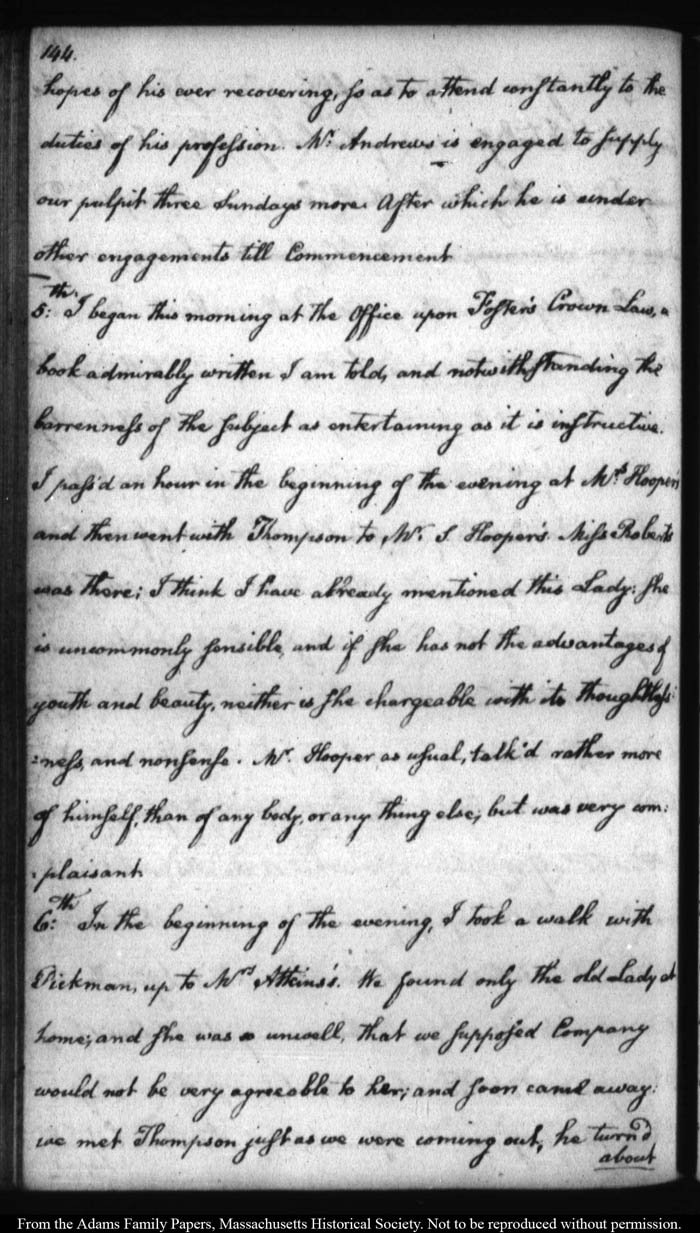 144.
hopes of his ever recovering, so as to attend constantly to the
duties of his profession. Mr. Andrews is engaged to supply
our pulpit three Sundays more. After which he is under
other engagements till Commencement
5:th. I began this morning at the Office upon Foster's Crown Law, a
book admirably written I am told, and notwithstanding the
barrenness of the subject as entertaining as it is instructive.
I pass'd an hour in the beginning of the evening at Mrs. Hooper's
and then went with Thompson to Mr. S. Hooper's. Miss Roberts
was there; I think I have already mentioned this Lady: she
is uncommonly sensible, and if she has not the advantages of
youth and beauty, neither is she chargeable with its thoughtless:
:ness, and nonsense. Mr. Hooper as usual, talk'd rather more
of himself, than of any body, or any thing else; but was very com:
:plaisant.
6:th In the beginning of the evening, I took a walk with
Pickman, up to Mrs Atkins's. We found only the old Lady at
home; and she was so unwell, that we supposed Company
would not be very agreeable to her; and soon came away:
we met Thompson just as we were coming out; he turn'd
about
From the Adams Family Papers, Massachusetts Historical Society. Not to be reproduced without permission.